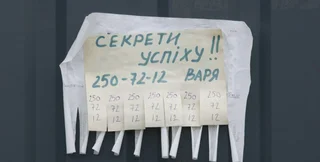 СЕКРЕТИ
УСПІХУ!!
250-72-12 ВАРЯ
250 250 250 250 250 250 250
72 72 72 72 72 72 72
12 12 12 12 12 12 12